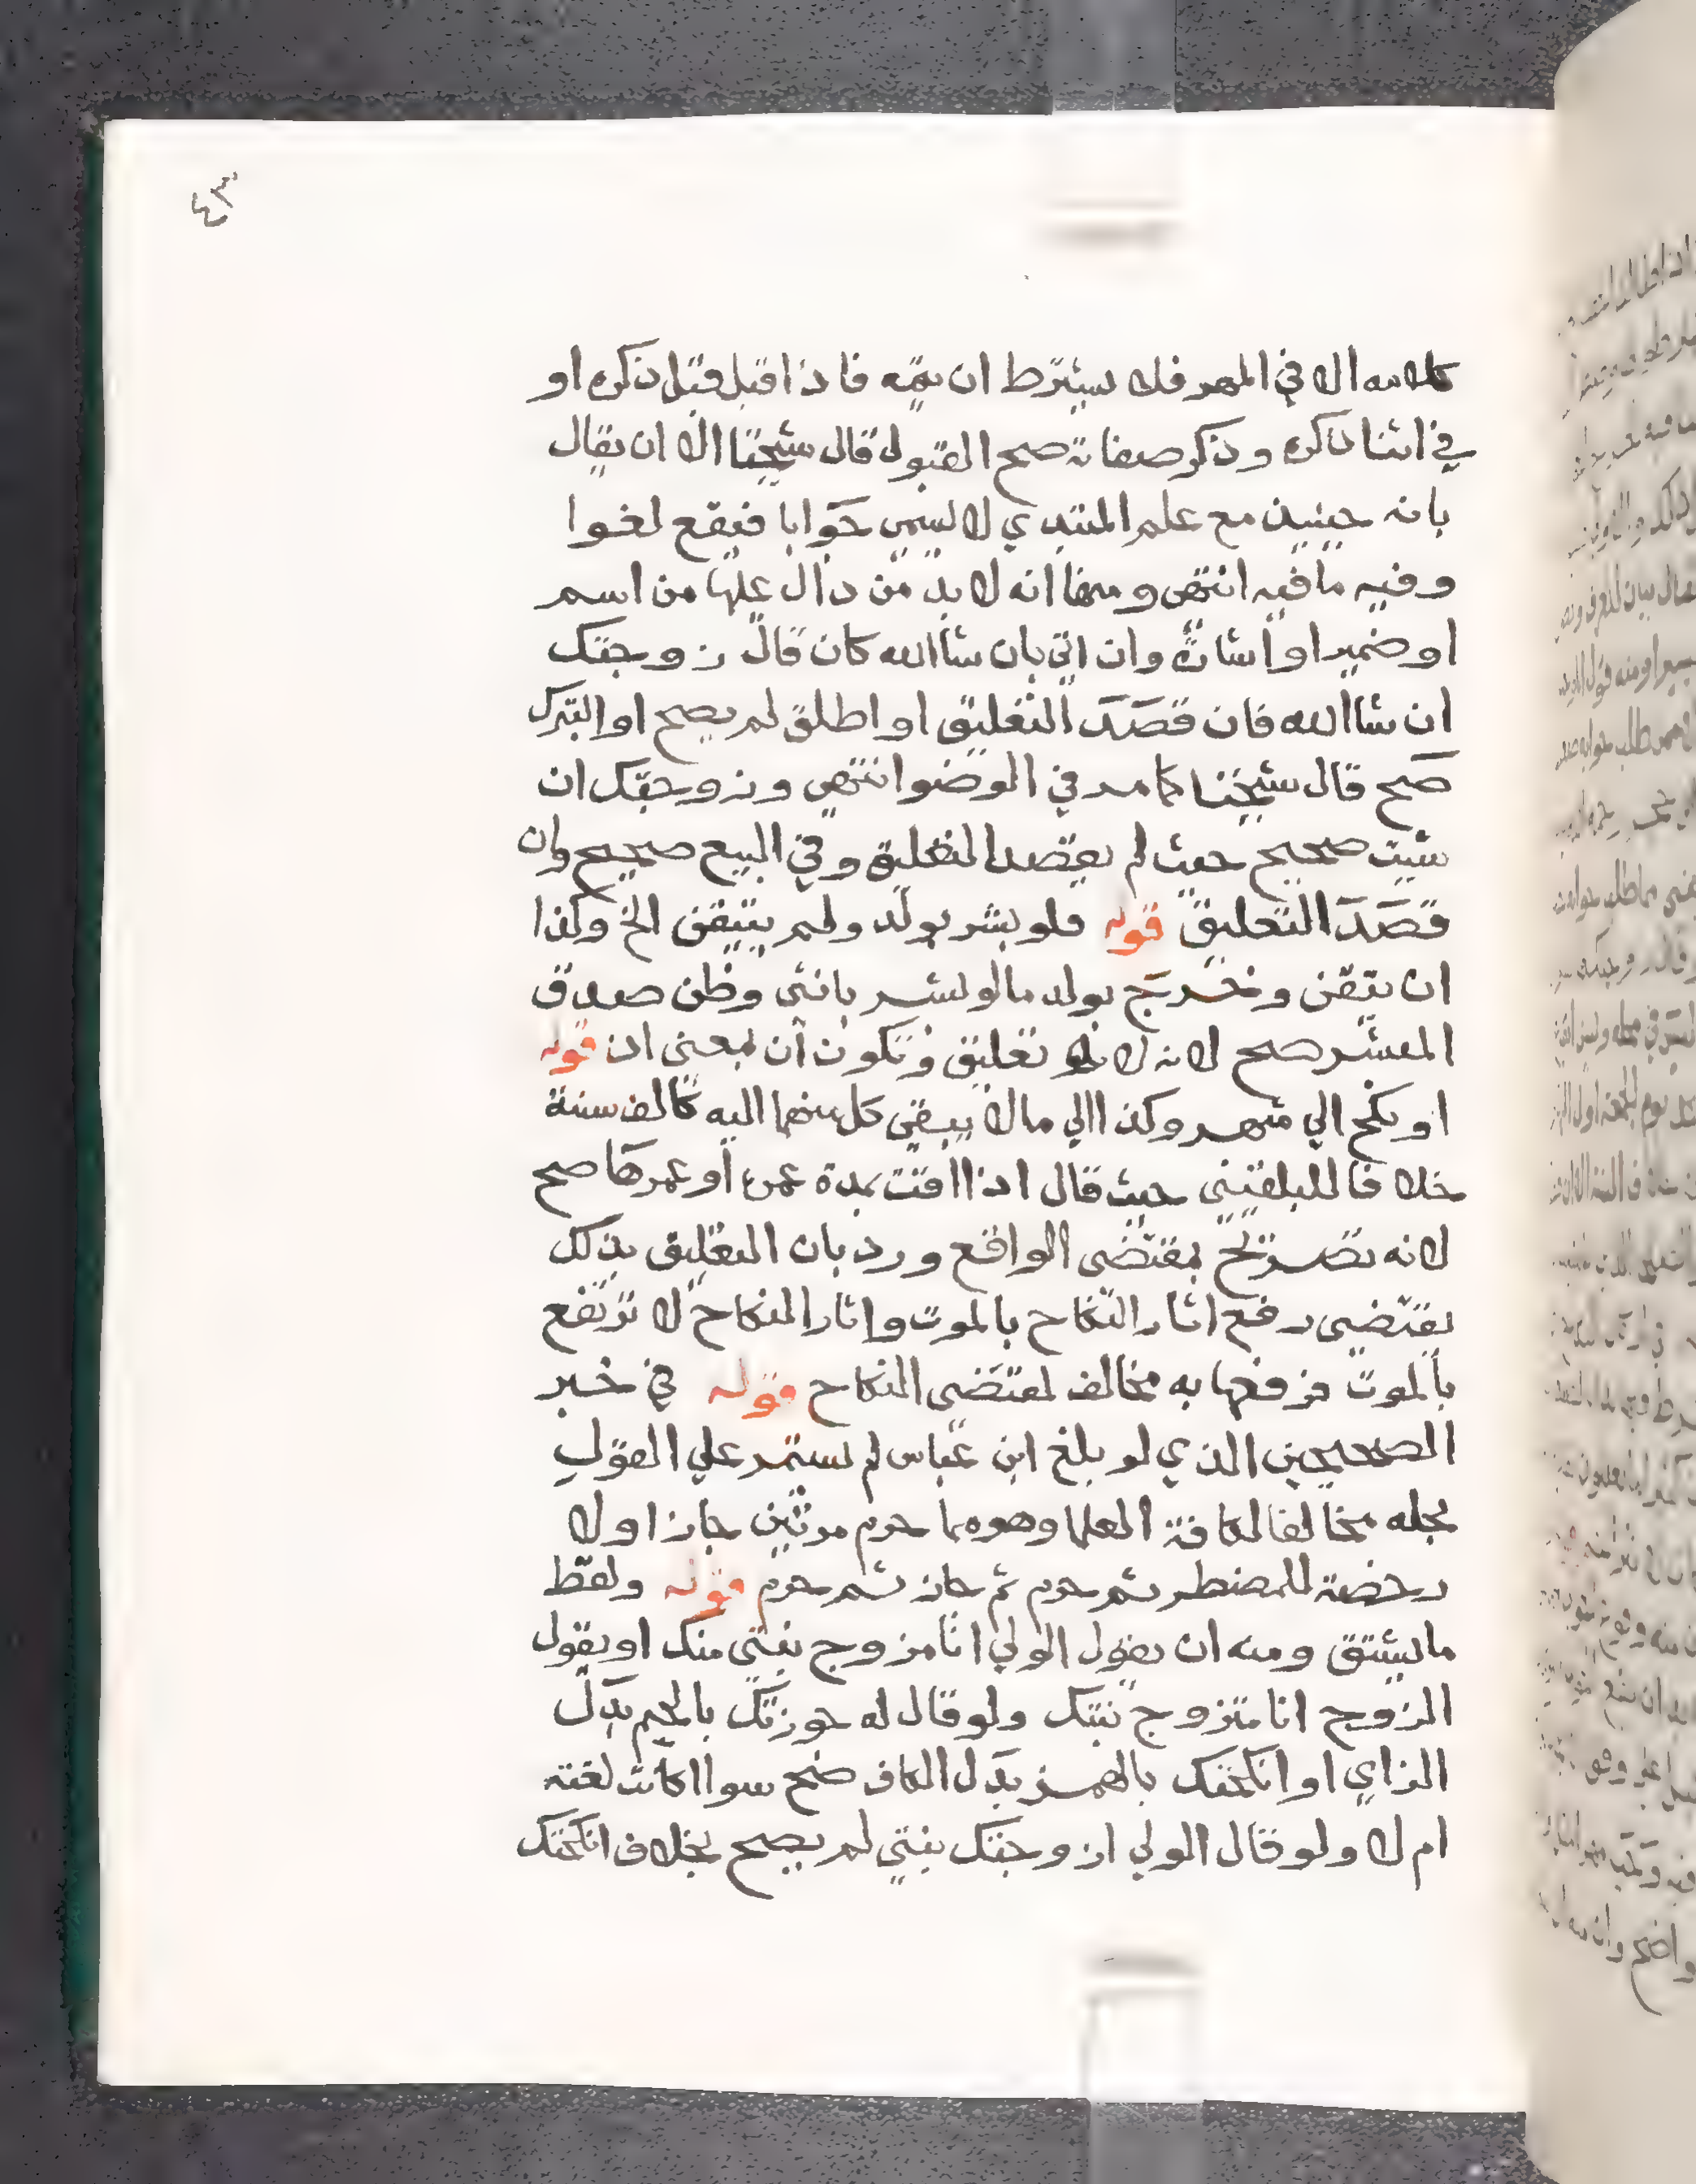 ٤٣
كلامه الا في المهر فلا يشترط ان يتمه فاذا قبل قبل ذكره او
في اثنا ذكره وذكر صفاته صح القبول قال شيخنا الا ان يقال
بانه حينيذ مع علم المبتدي لا ليسمى جوابا فيقع لغوا
وفيه ما فيه انتهى ومنها انه لا بد من دال عليها من اسم
او ضمير او اشارة وان اتي بان شاالله كان قال زوجتك
ان شاالله فان قصد التعليق او اطلق لم يصح او التبرك
صح قال شيخنا كما مر في الوضوا انتهى وزوجتك ان
شيت صحيح حيث لم يقصد التعليق وفي البيع صحيح وان
قصد التعليق قوله فلو بشر بولد ولم يتيقن الخ وكذا
ان يتقن وخرج بولد ما لو بشر بانثى وظن صدق
المبشر صح لانه لا تعليق وتكون ان بمعنى اذ قوله
او نكح الي شهر وكذا الي ما لا يبقى كل منهما اليه كالف سنة
خلافا للبلقيني حيث قال اذا اقت بمدة عمره او عمرها صح
لانه تصريح بمقتضى الواقع ورد بان التعليق بذلك
يقتضي رفع اثار النكاح بالموت واثار النكاح لا ترتفع
بالموت فرفعها به مخالف لمقتضى النكاح قوله في خبر
الصحيحين الذي لو بلغ ابن عباس لم يستمر علي القول
بحله مخالفا لكافة العلما وهو مما حرم مرتين جاز اولا
رخصة للمضطر ثم حرم ثم جاز ثم حرم قوله ولفظ
ما يشتق ومنه ان يقول الولي انا مزوج بنتى منك او يقول
الزوج انا متزوج بنتك ولو قال له جوزتك بالجيم بدل
الزاي او انكحتك بالهمز بدل الكاف صح سوا اكانت لغته
ام لا ولو قال الولي ازوجتك بنتي لم يصح بخلاف انكحتك